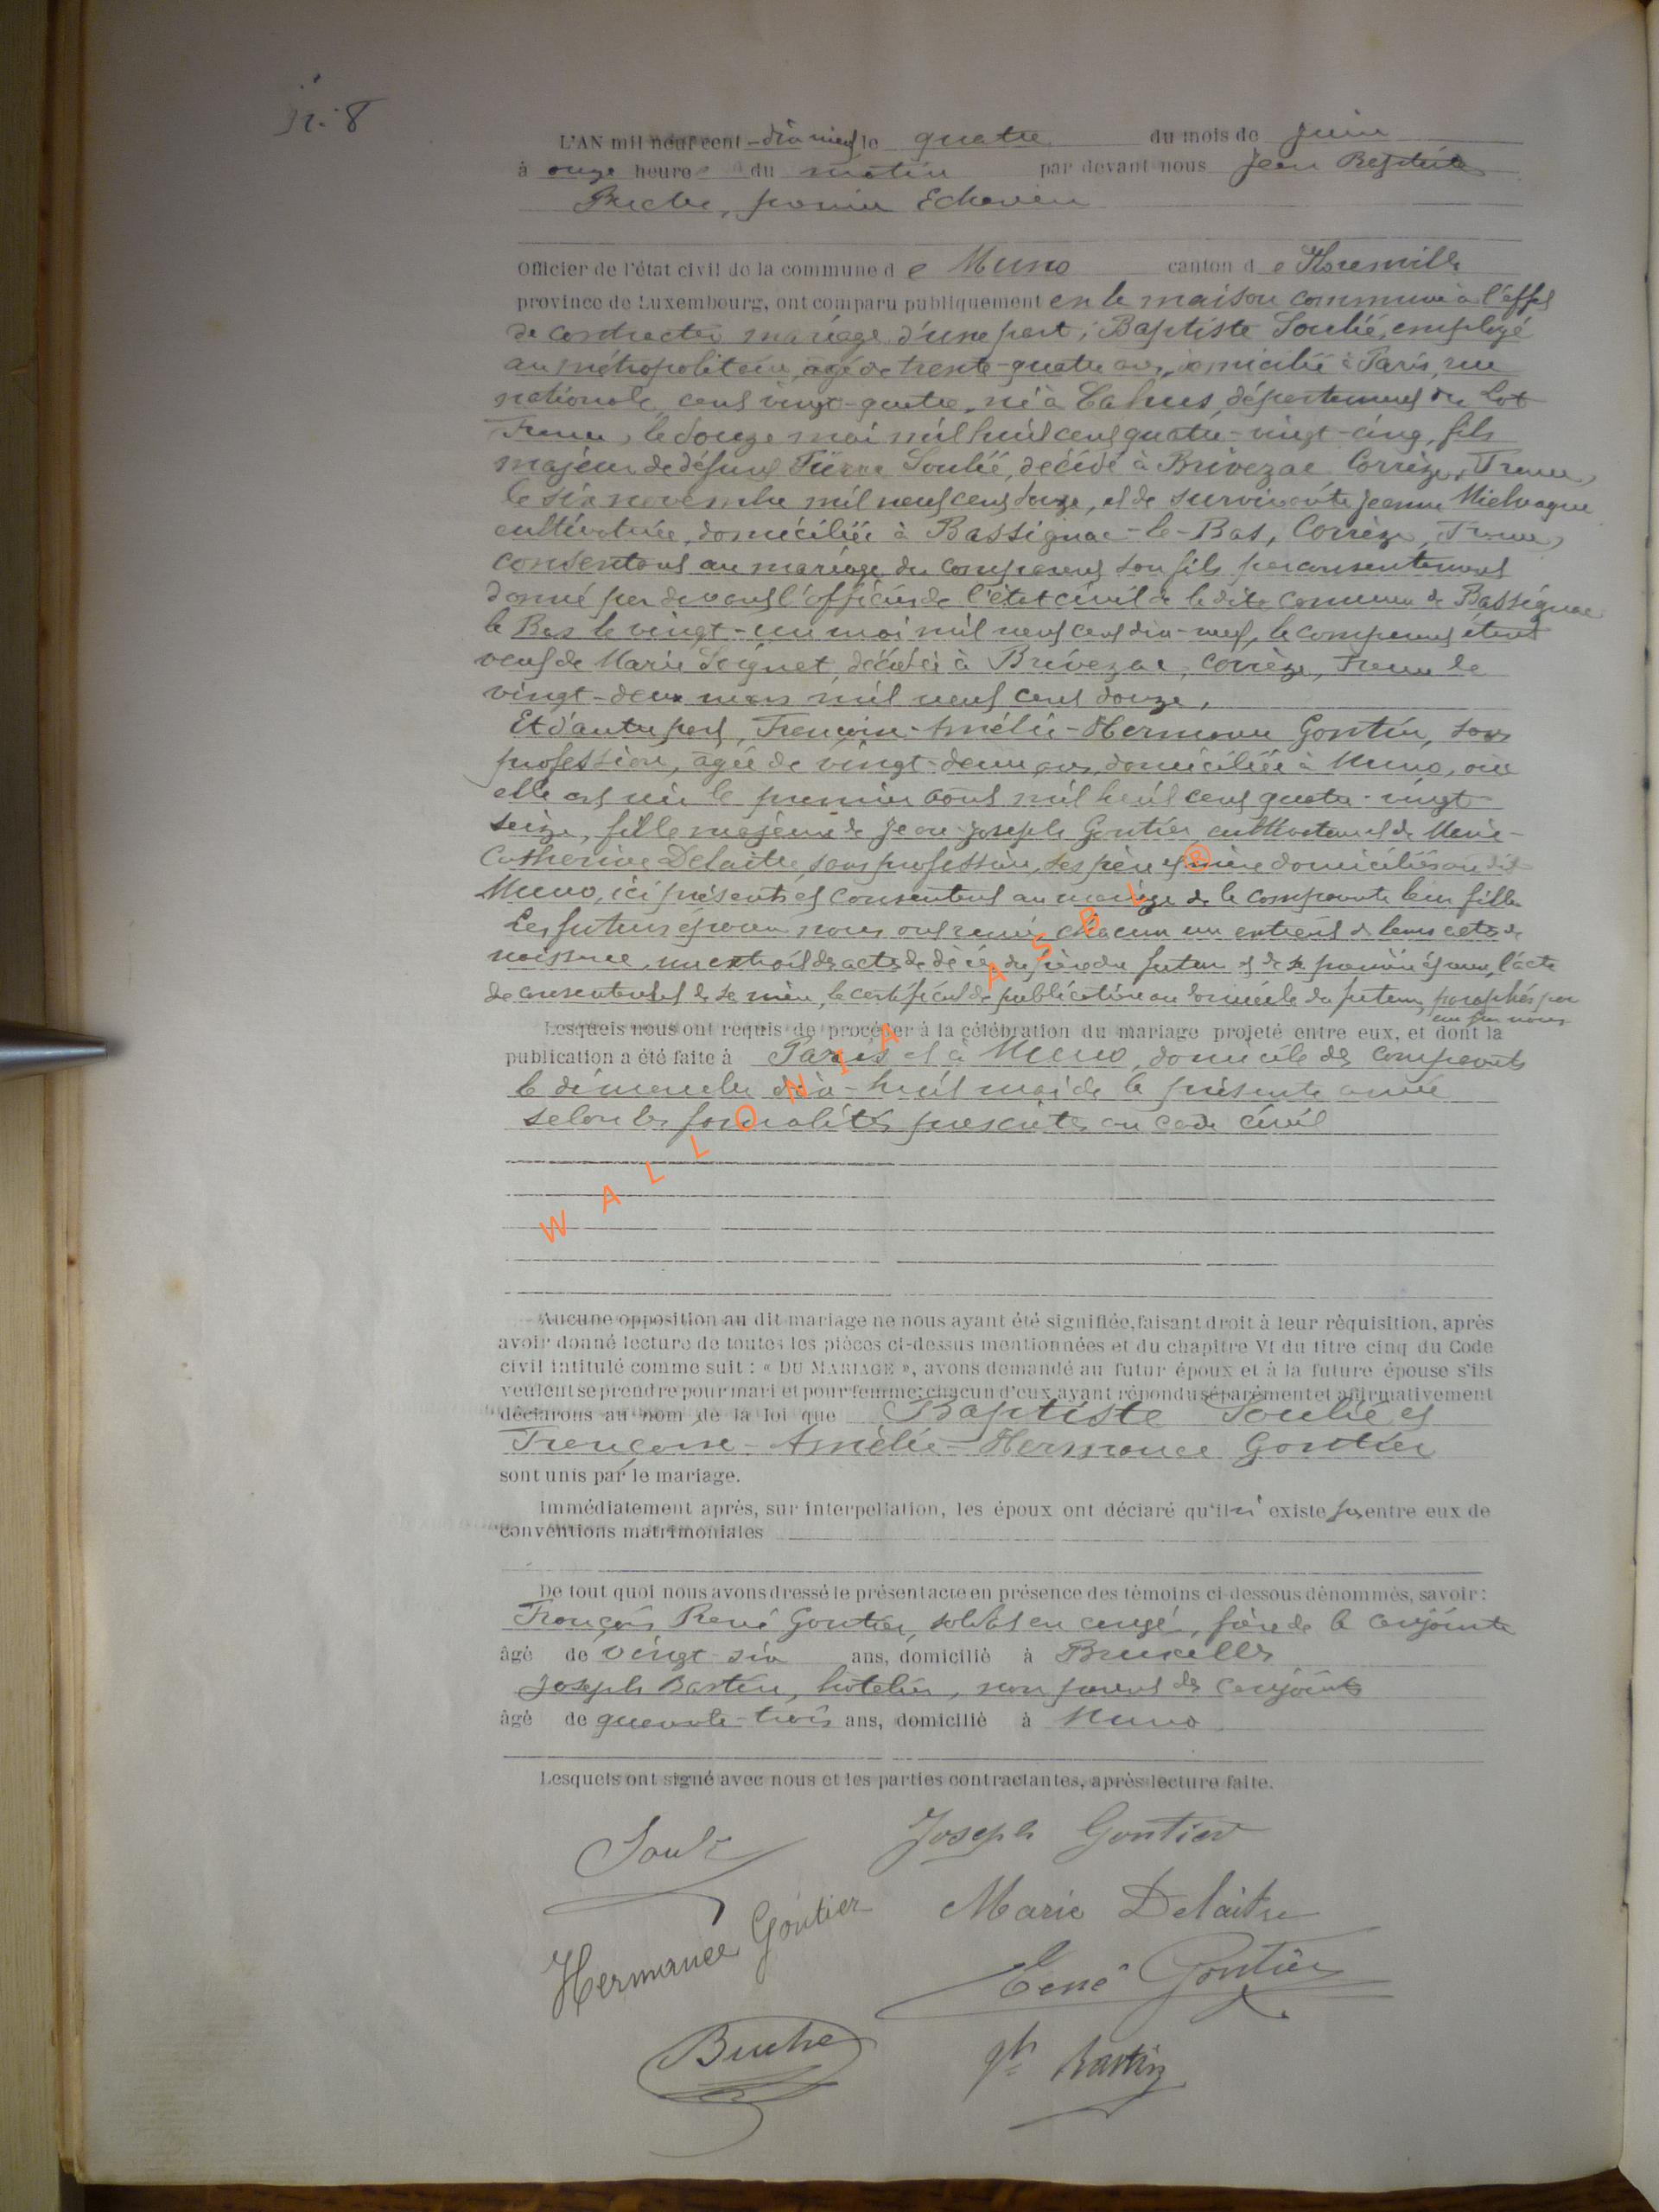 n: 8
L'AN mil neuf cent - dix neuf le quatre du mois de juin
à onze heures du matin par devant nous Jean Baptiste
Buche, premier Echevin
Officier de l'état civil de la commune de Muno canton de Florenville
province de Luxembourg, ont comparu publiquement en la maison commune à l'effet
de contracter mariage d'une part, Baptiste Soulié, employé
au métropolitain, âgé de trente-quatre ans, domicilié à Paris, rue
nationale cent vingt-quatre, né à Cahus, département du Lot
France, le douze mai mil huit cent quatre-vingt-cinq, fils
majeur de défunt Pierre Soulié, décédé à Brivezac Corrèze, France,
le six novembre mil neuf cent douze, et de survivante Jeanne Mielvaque
cultivatrice, domiciliée à Bassignac-le-Bas, Corrèze, France,
consentant au mariage du comparant son fils par consentement
donné par devant l'officier de l'état civil de la dite commune de Bassignac
le Bas le vingt-un mai mil neuf cent dix-neuf, le comparant étant
veuf de Marie Soignet, décédée à Brivezac, Corrèze, France le
vingt-deux mars mil neuf cent douze,
Et d'autre part, Françoise-Amélie-Hermance Gontier, sans
profession, âgée de vingt-deux ans, domiciliée à Muno, où
elle est née le premier août mil huit cent quatre-vingt
seize, fille majeure de Jean-Joseph Gontier cultivateur et de Marie-
Catherine Delaitre, sans profession, ses père et mère domiciliés au dit
Muno, ici présents et consentant au mariage de la comparante leur fille
Les futurs époux nous ont remis chacun un extrait de leurs actes de
naissance, un extrait des actes de décès du père du futur et de sa première épouse, l'acte
de consentement de sa mère, le certificat de publication au domicile du futur, paraphés par
eux par nous
Lesquels nous ont requis de procéder à la célébration du mariage projeté entre eux, et dont la
publication a été faite à Paris et à Muno, domicile des comparants
le dimanche dix-huit mai de la présente année
selon les formalités prescrites au code civil
WALLONIA ASBL ®
Aucune opposition au dit mariage ne nous ayant été signifiée, faisant droit à leur réquisition, après
avoir donné lecture de toutes les pièces ci-dessus mentionnées et du chapitre VI du titre cinq du Code
civil intitulé comme suit : « DU MARIAGE », avons demandé au futur époux et à la future épouse s'ils
veulent se prendre pour mari et pour femme; chacun d'eux ayant répondu séparément et affirmativement
déclarons au nom de la loi que Baptiste Soulié et
Françoise-Amélie-Hermance Gontier
sont unis par le mariage.
Immédiatement après, sur interpellation, les époux ont déclaré qu'il n'existe pas entre eux de
conventions matrimoniales
De tout quoi nous avons dressé le présent acte en présence des témoins ci-dessous dénommés, savoir :
François René Gontier, soldat en congé, frère de la conjointe
âgé de vingt six ans, domicilié à Bruxelles
Joseph Bastin, hôtelier, non parent des conjoints
âgé de quarante-trois ans, domicilié à Muno
Lesquels ont signé avec nous et les parties contractantes, après lecture faite.
Soulié Joseph Gontier
Hermance Gontier Marie Delaitre
René Gontier
Buche Jh Bastin